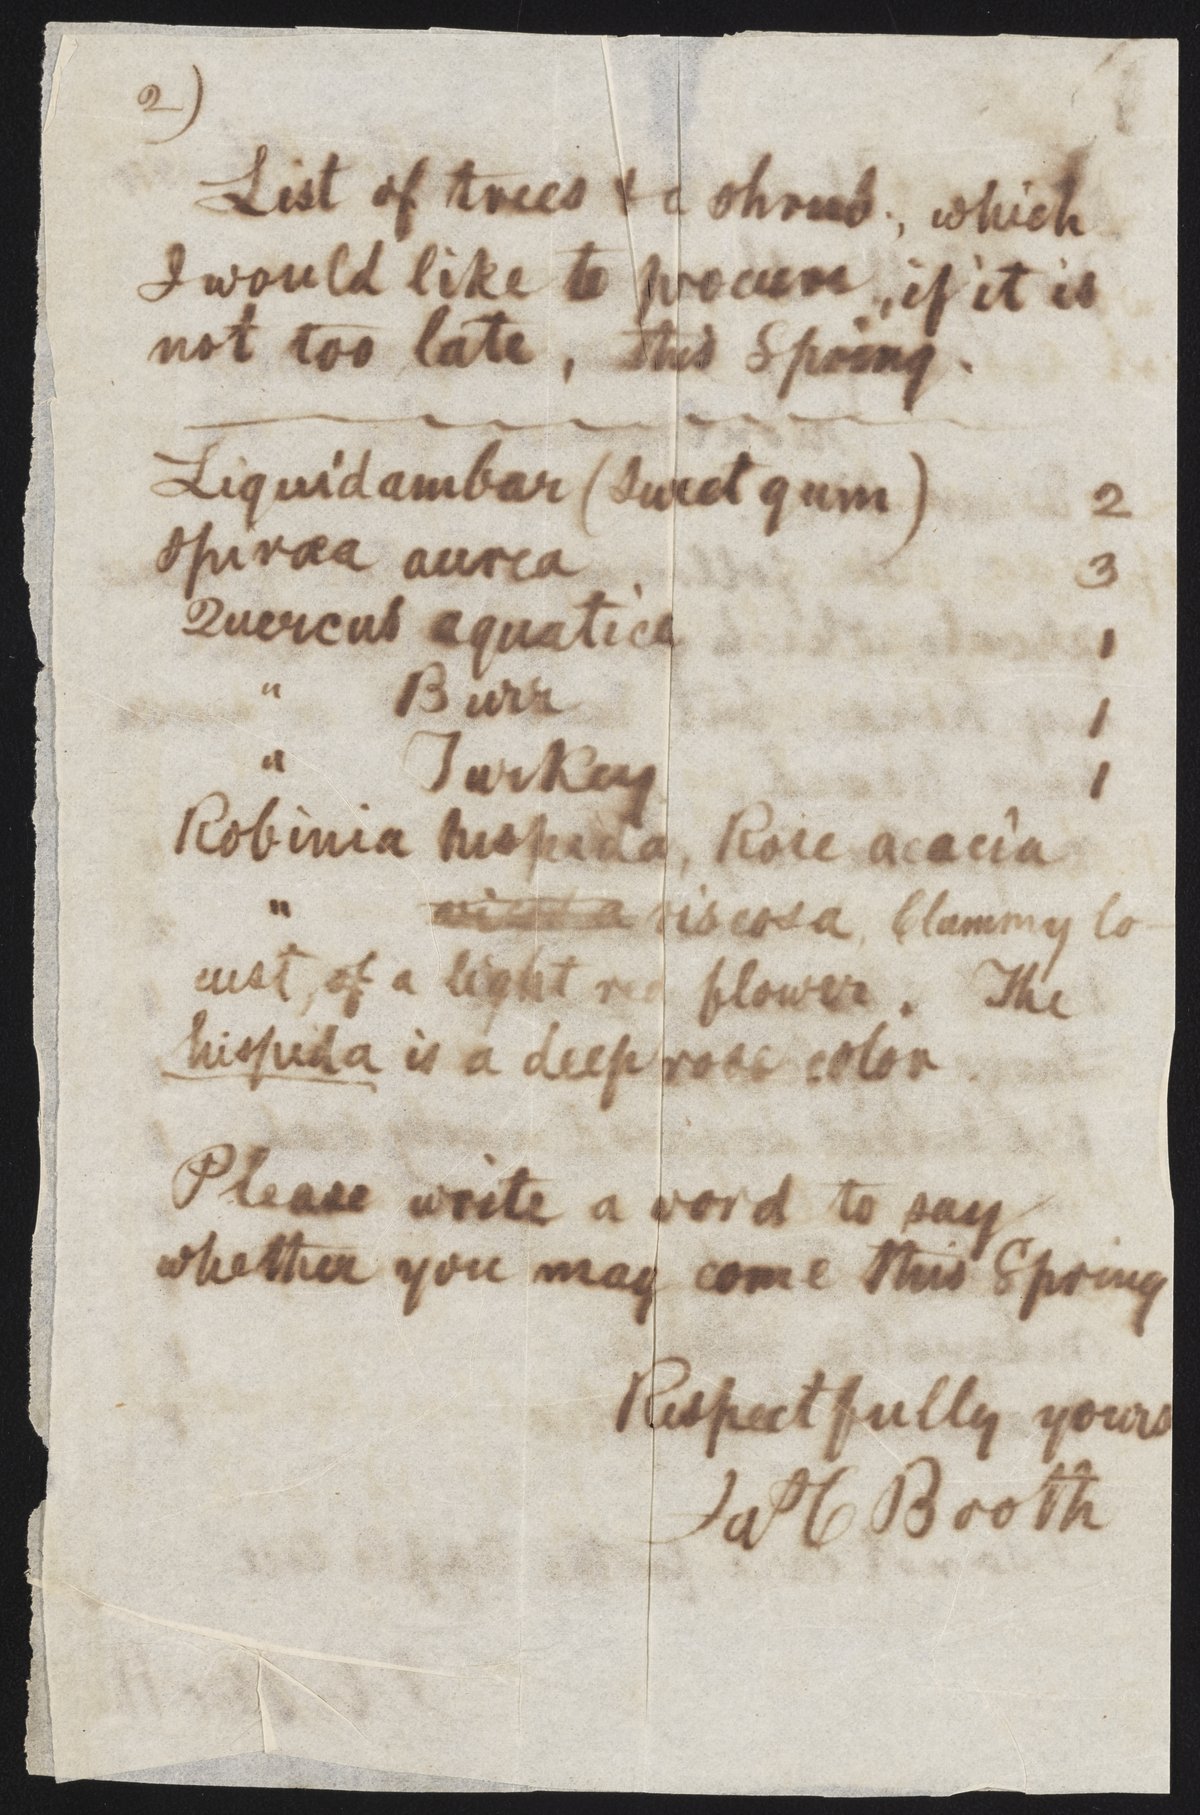 2)
List of trees & a shrub, which
I would like to procure, if it is
not too late, this Spring.
Liquidambar (Sweet gum) 2
Spiræa aurea 3
Quercus aquatica 1
" Burr 1
" Turkey 1
Robinia hispida, Rose acacia
" viscosa, Clammy lo-
cust, of a light red flower. The
hispida is a deep rose color
Please write a word to say
whether you may come this Spring
Respectfully yours
Booth